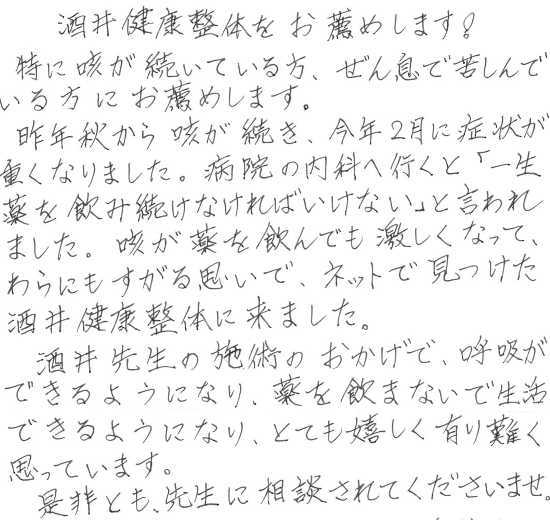 酒井健康整体をお薦めします!
特に咳が続いている方、ぜん息で苦しんで
いる方にお薦めします。
昨年秋から咳が続き、今年2月に症状が
重くなりました。病院の内科へ行くと「一生
薬を飲み続けなければいけない」と言われ
ました。咳が薬を飲んでも激しくなって、
わらにもすがる思いで、ネットで見つけた
酒井健康整体に来ました。
酒井先生の施術のおかげで、呼吸が
できるようになり、薬を飲まないで生活
できるようになり、とても嬉しく有り難く
思っています。
是非とも、先生に相談されてくださいませ。